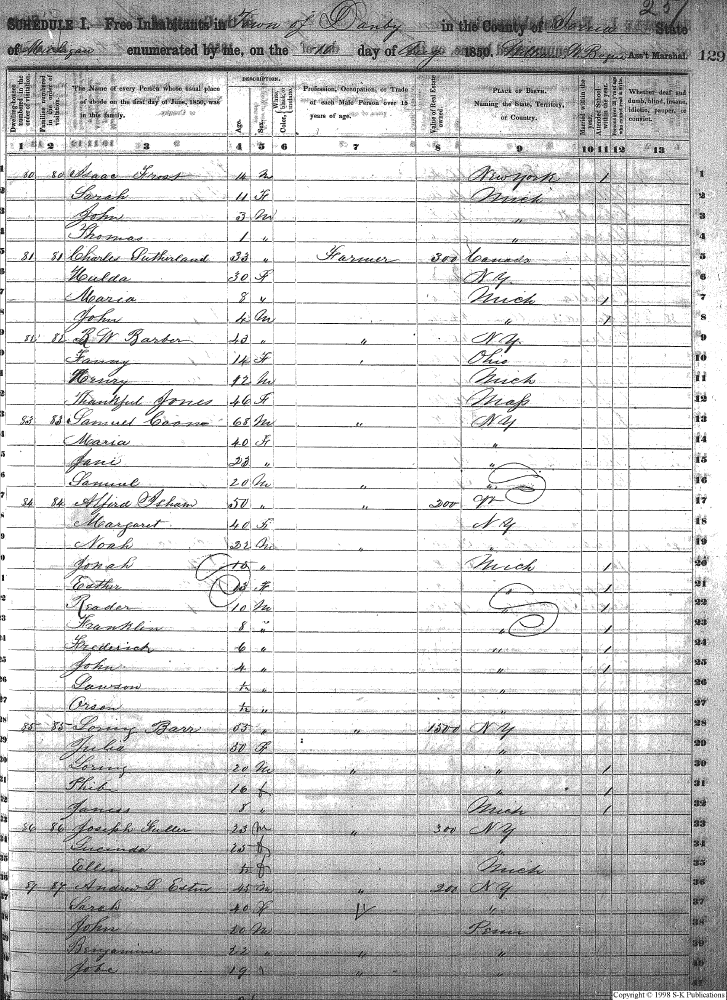 251
SCHEDULE I. Free Inhabitants in Town of Danby in the County of Ionia State
of Michigan enumerated by me, on the day of Aug 1850. Ass't Marshal. 129
DESCRIPTION.
Dwelling-houses numbered in the order of visitation.
Families numbered in the order of visitation.
The Name of every Person whose usual place of abode on the first day of June, 1850, was in this family.
Age.
Sex.
Color, White, black, or mulatto.
Profession, Occupation, or Trade of each Male Person over 15 years of age.
Value of Real Estate owned
PLACE OF BIRTH. Naming the State, Territory, or Country.
Married within the year.
Attended School within the year.
Whether deaf and dumb, blind, insane, idiotic, pauper, or convict.
1 2 3 4 5 6 7 8 9 10 11 12 13
80 80 Isaac Frost 14 M New York 1
Sarah 11 F Mich
John 3 M "
Thomas 1 " "
81 81 Charles Sutherland 33 " Farmer 300 Canada
Hulda 30 F N.Y.
Maria 8 " Mich 1
John 4 M " 1
82 R W Barber 43 " " N.Y.
Fanny 14 F Ohio
Henry 12 M Mich
Thankful Jones 46 F Mass
83 83 Samuel Coons 68 M " N Y
Maria 40 F "
Jane 23 " "
Samuel 20 M " "
84 84 Alferd Isham 50 " " 200 Vt
Margaret 40 F N Y
Noah 22 M " "
Jonah " Mich 1
Esther 13 F 1
Reader 10 M " 1
Franklin 8 " " 1
Frederick 6 " " 1
John 4 " " 1
Lawson "
Orson "
85 85 Loring Barr 55 " " 1500 N Y
Julia 30 F "
Loring 20 M " " 1
16 f " 1
8 " Mich 1
86 86 Joseph Fuller 23 M " 300 N Y
Lucinda 25 f "
Ellen f Mich
87 87 Andrew D 45 M " 200 N Y
Sarah 40 F "
John M Penn
Benjamin 22 " " "
19 " "
Copyright © 1998 S-K Publications